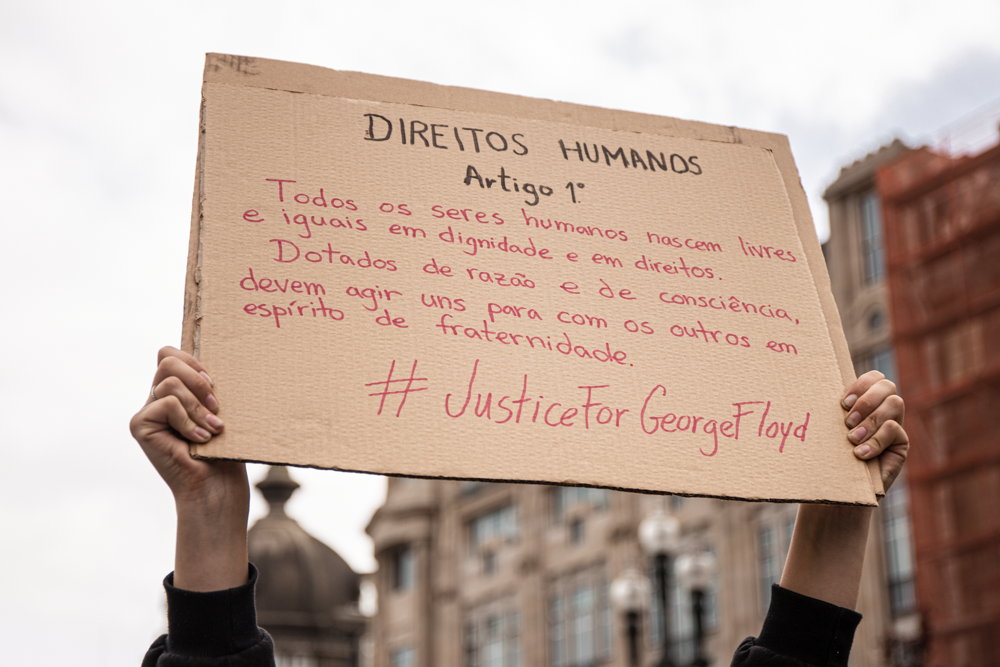 DIREITOS HUMANOS
Artigo 1º
Todos os seres humanos nascem livres
e iguais em dignidade e em direitos.
Dotados de razão e de consciência,
devem agir uns para com os outros em
espírito de fraternidade.
# JusticeForGeorgeFloyd